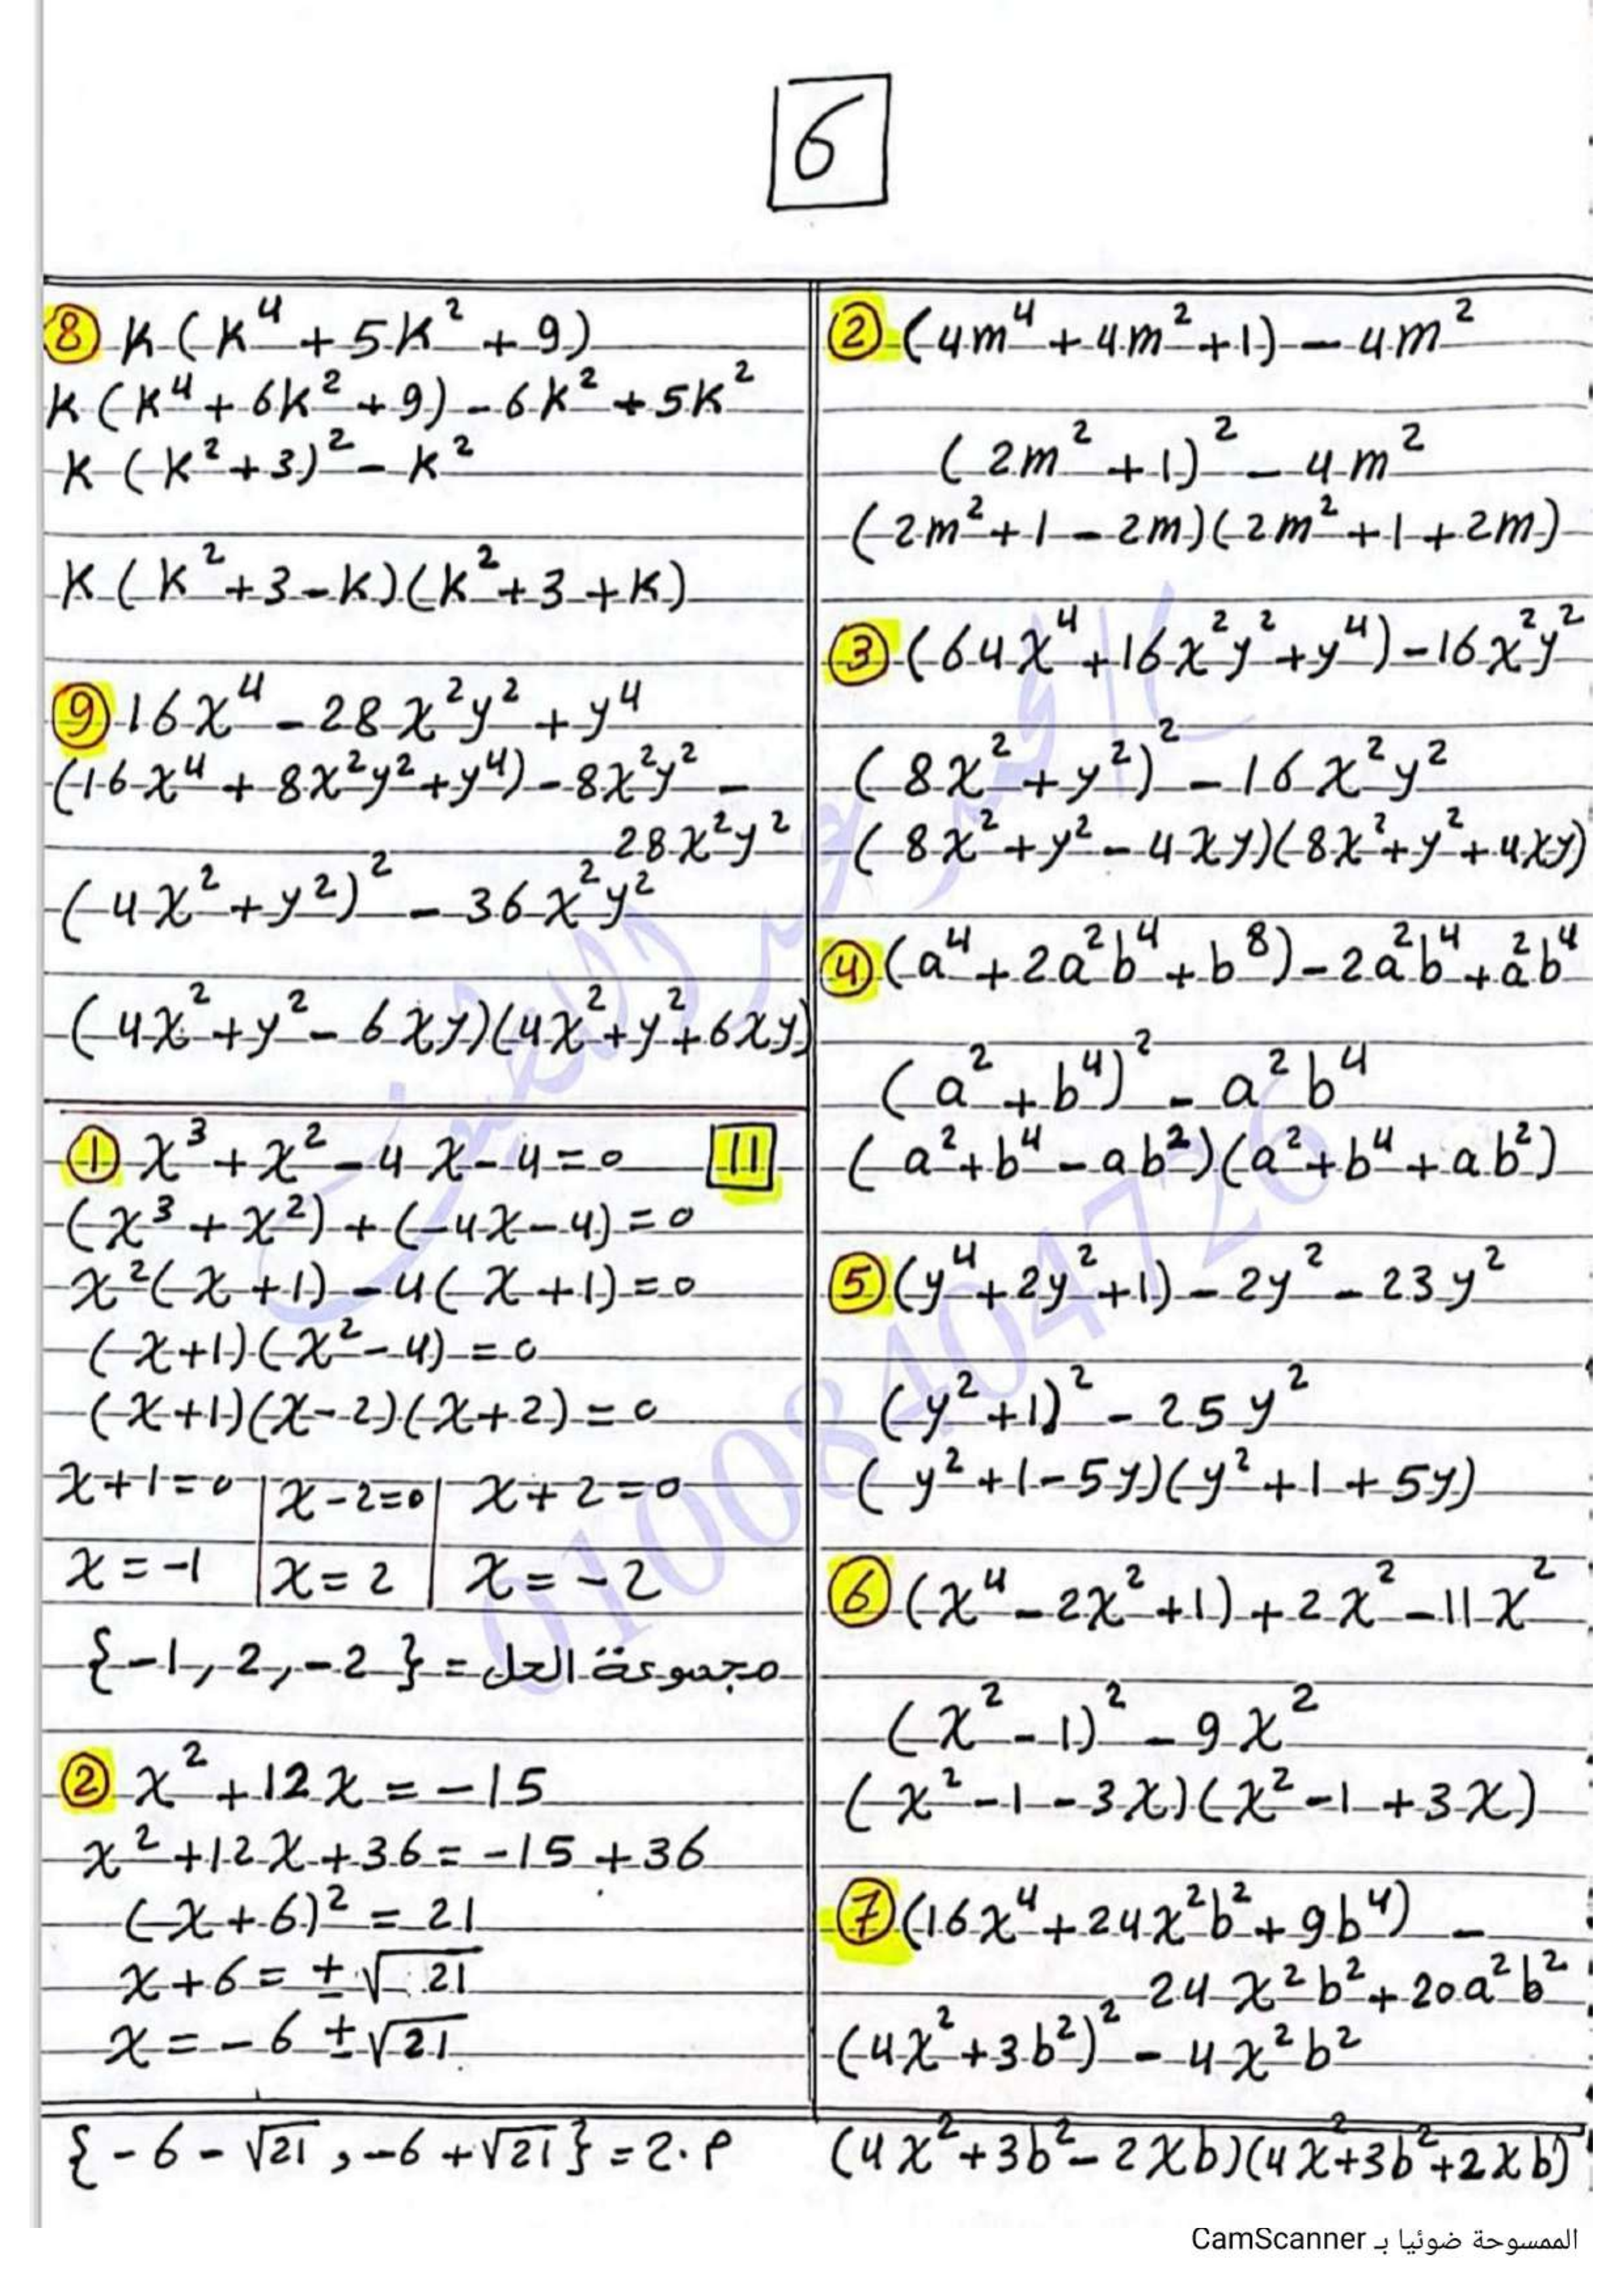 6
② (4m⁴ + 4m² + 1) - 4m²
(2m² + 1)² - 4m²
(2m² + 1 - 2m)(2m² + 1 + 2m)
③ (64x⁴ + 16x²y² + y⁴) - 16x²y²
(8x² + y²)² - 16x²y²
(8x² + y² - 4xy)(8x² + y² + 4xy)
④ (a⁴ + 2a²b⁴ + b⁸) - 2a²b⁴ + a²b⁴
(a² + b⁴)² - a²b⁴
(a² + b⁴ - ab²)(a² + b⁴ + ab²)
⑤ (y⁴ + 2y² + 1) - 2y² - 23y²
(y² + 1)² - 25y²
(y² + 1 - 5y)(y² + 1 + 5y)
⑥ (x⁴ - 2x² + 1) + 2x² - 11x²
(x² - 1)² - 9x²
(x² - 1 - 3x)(x² - 1 + 3x)
⑦ (16x⁴ + 24x²b² + 9b⁴) -
24x²b² + 20a²b²
(4x² + 3b²)² - 4x²b²
(4x² + 3b² - 2xb)(4x² + 3b² + 2xb)
⑧ k(k⁴ + 5k² + 9)
k(k⁴ + 6k² + 9) - 6k² + 5k²
k(k² + 3)² - k²
k(k² + 3 - k)(k² + 3 + k)
⑨ 16x⁴ - 28x²y² + y⁴
(16x⁴ + 8x²y² + y⁴) - 8x²y² -
28x²y²
(4x² + y²)² - 36x²y²
(4x² + y² - 6xy)(4x² + y² + 6xy)
① x³ + x² - 4x - 4 = 0 11
(x³ + x²) + (-4x - 4) = 0
x²(x + 1) - 4(x + 1) = 0
(x + 1)(x² - 4) = 0
(x + 1)(x - 2)(x + 2) = 0
x + 1 = 0 | x - 2 = 0 | x + 2 = 0
x = -1 | x = 2 | x = -2
{-1, 2, -2} = مجموعة الحل
② x² + 12x = -15
x² + 12x + 36 = -15 + 36
(x + 6)² = 21
x + 6 = ±√21
x = -6 ±√21
{-6 - √21, -6 + √21} = م.ح
01008404726
الممسوحة ضوئيا بـ CamScanner